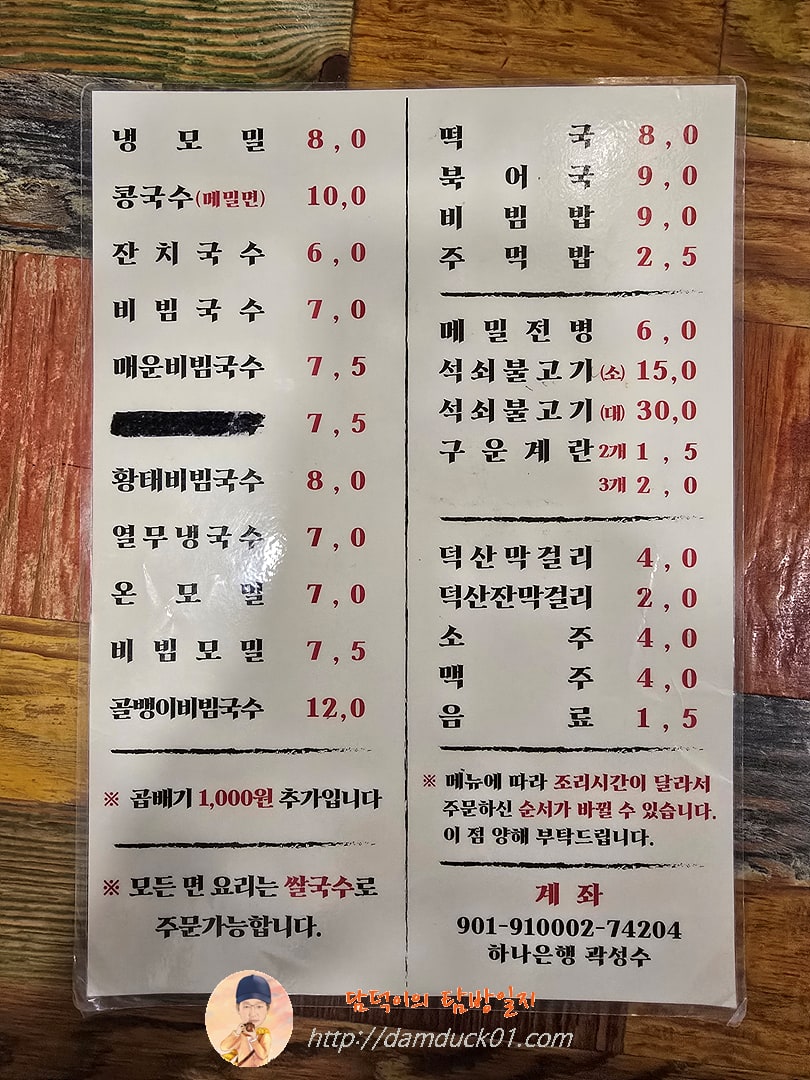 냉모밀 8,0
콩국수(메밀면) 10,0
잔치국수 6,0
비빔국수 7,0
매운비빔국수 7,5
7,5
황태비빔국수 8,0
열무냉국수 7,0
온모밀 7,0
비빔모밀 7,5
골뱅이비빔국수 12,0
※ 곱배기 1,000원 추가입니다
※ 모든 면 요리는 쌀국수로
주문가능합니다.
떡국 8,0
북어국 9,0
비빔밥 9,0
주먹밥 2,5
메밀전병 6,0
석쇠불고기(소) 15,0
석쇠불고기(대) 30,0
구운계란 2개 1,5
3개 2,0
덕산막걸리 4,0
덕산잔막걸리 2,0
소주 4,0
맥주 4,0
음료 1,5
※ 메뉴에 따라 조리시간이 달라서
주문하신 순서가 바뀔 수 있습니다.
이 점 양해 부탁드립니다.
계좌
901-910002-74204
하나은행 곽성수
담덕이의 탐방일지
http://damduck01.com